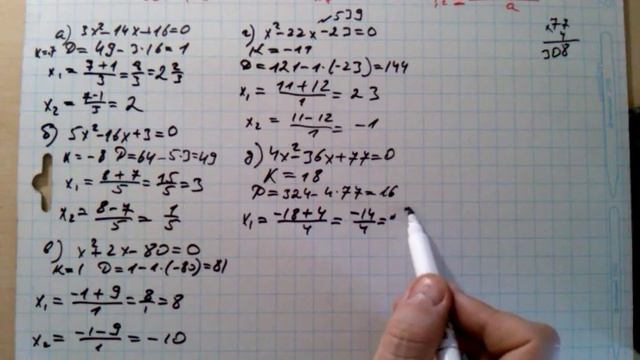 а) 3x²-14x+16=0
K=-7 D=49-3·16=1
x₁=(7+1)/3=8/3=2 2/3
x₂=(7-1)/3=2
б) 5x²-16x+3=0
K=-8 D=64-5·3=49
x₁=(8+7)/5=15/5=3
x₂=(8-7)/5=1/5
в) x²+2x-80=0
K=1 D=1-1·(-80)=81
x₁=(-1+9)/1=8/1=8
x₂=(-1-9)/1=-10
√539
г) x²-22x-23=0
K=-11
D=121-1·(-23)=144
x₁=(11+12)/1=23
x₂=(11-12)/1=-1
д) 4x²-36x+77=0
K=18
D=324-4·77=16
x₁=(-18+4)/4=-14/4=-
a
×77
4
308